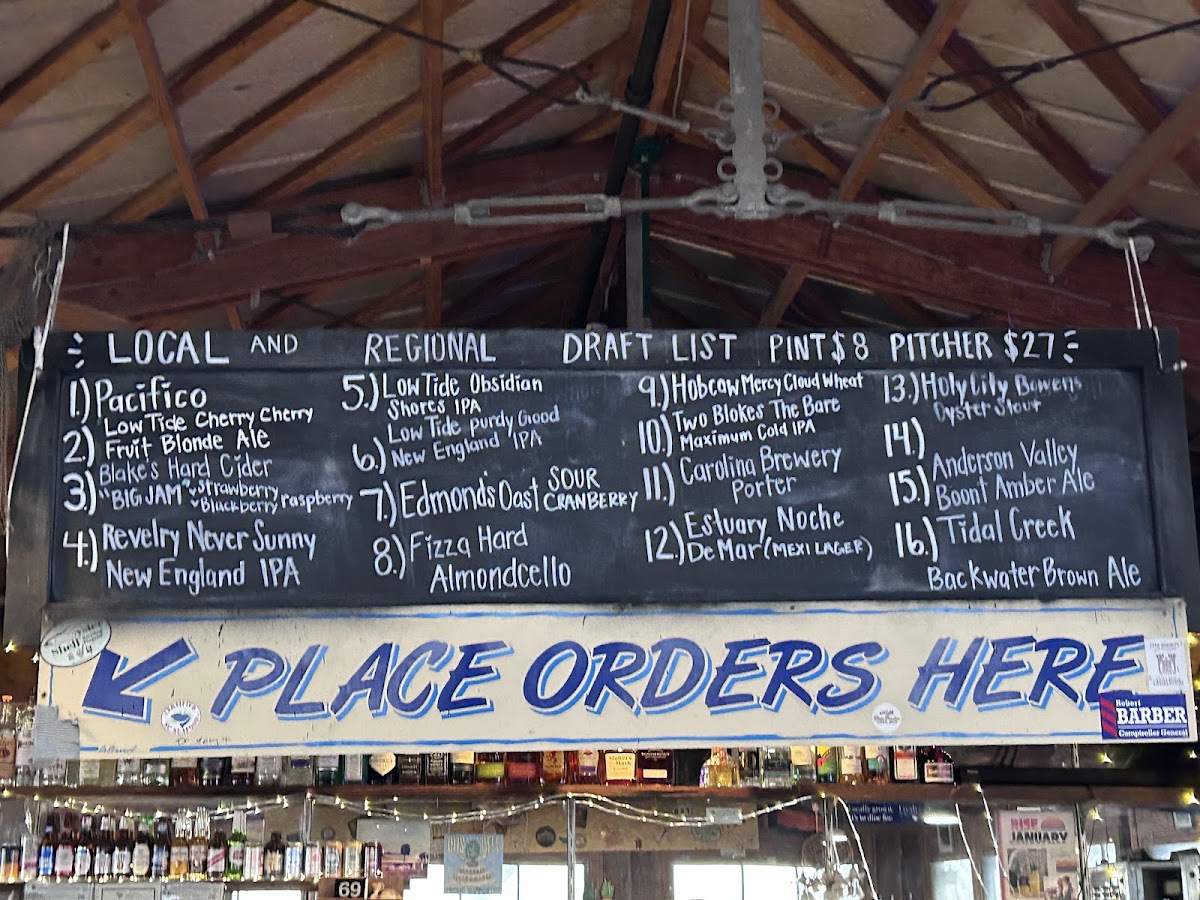 LOCAL AND REGIONAL DRAFT LIST PINT $8 PITCHER $27
1.) Pacifico
2.) Low Tide Cherry Cherry
Fruit Blonde Ale
3.) Blake's Hard Cider
"BIG JAM" Strawberry
Blackberry raspberry
4.) Revelry Never Sunny
New England IPA
5.) Low Tide Obsidian
Shores IPA
6.) Low Tide Purdy Good
New England IPA
7.) Edmond's Oast SOUR
CRANBERRY
8.) Fizza Hard
Almondcello
9.) Hobcaw Mercy Cloud Wheat
10.) Two Blokes The Bare
Maximum Cold IPA
11.) Carolina Brewery
Porter
12.) Estuary Noche
De Mar (MEXI LAGER)
13.) Holy City Bowens
Oyster Stout
14.)
15.) Anderson Valley
Boont Amber Ale
16.) Tidal Creek
Backwater Brown Ale
PLACE ORDERS HERE
Robert
BARBER
Comptroller General
RISE
JANUARY
69